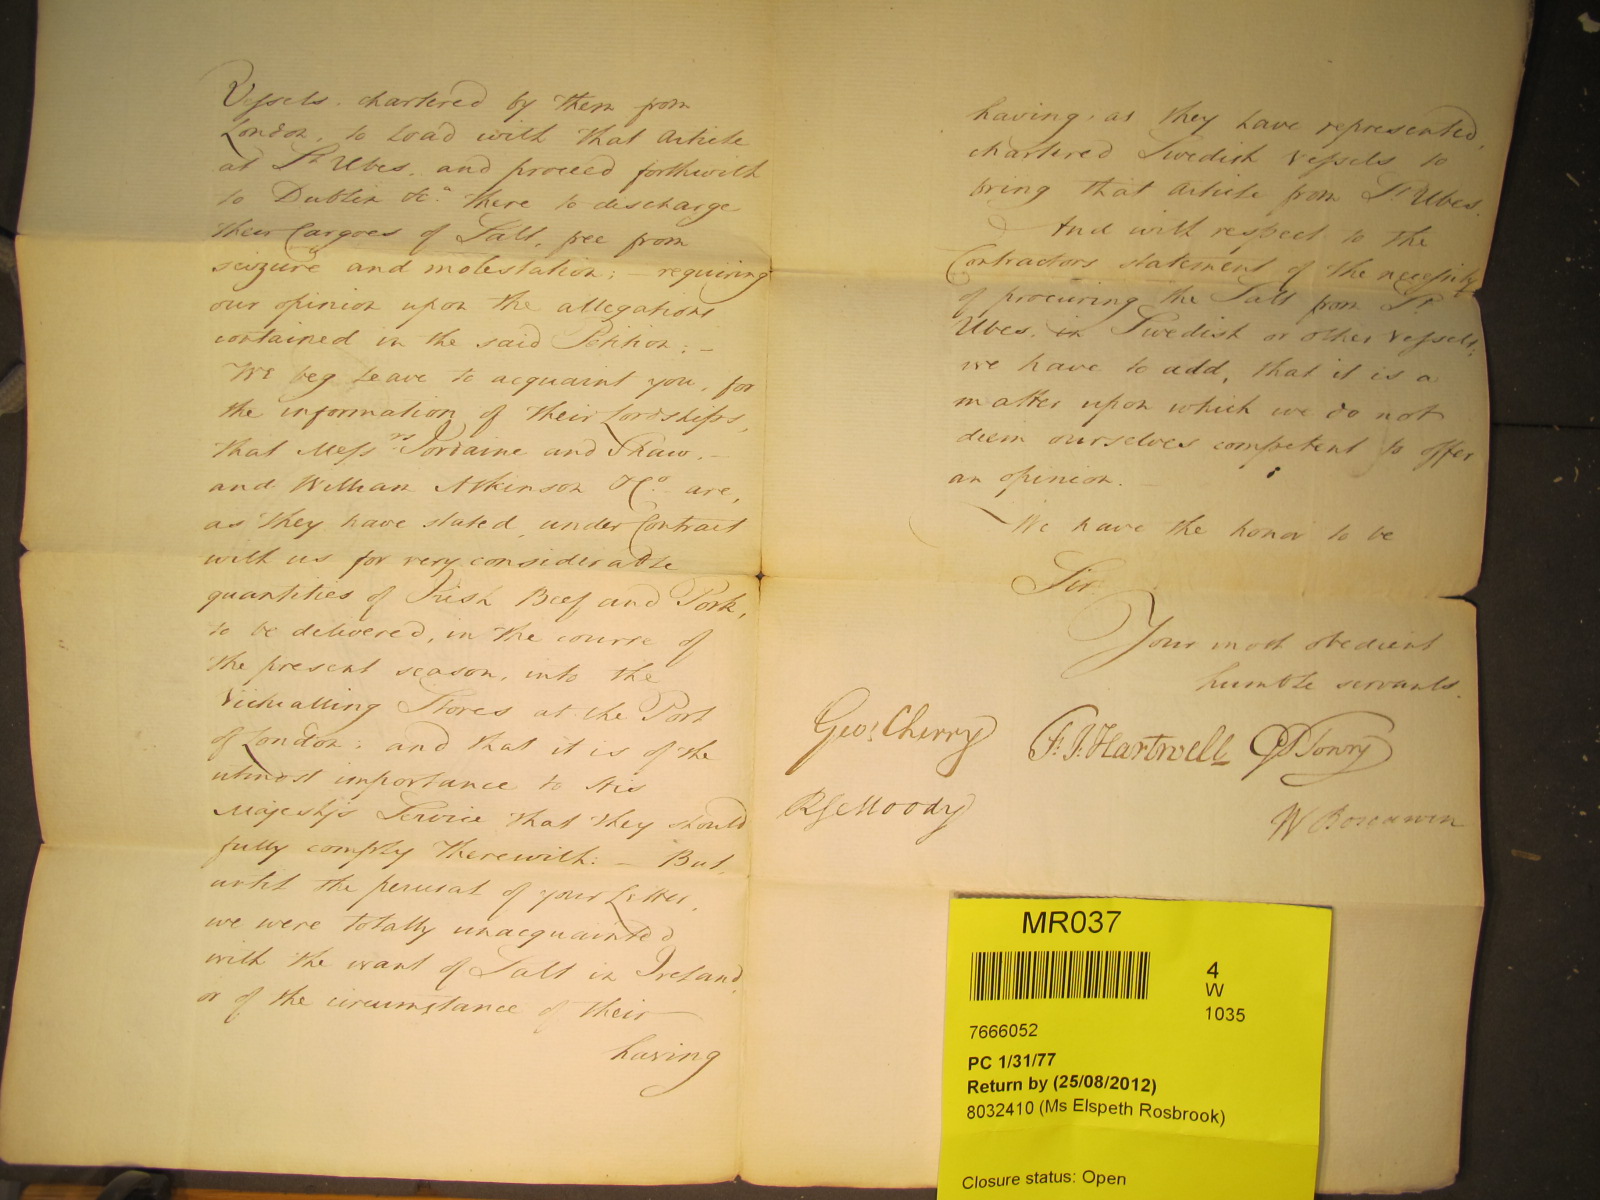 Vessels, chartered by them from
London, to load with that Article
at St. Ubes, and proceed forthwith
to Dublin &ca. there to discharge
their Cargoes of Salt, free from
seizure and molestation; – requiring
our opinion upon the allegations
contained in the said Petition; –
We beg leave to acquaint you, for
the information of their Lordships,
that Messrs. Jordaine and Shaw, –
and William Atkinson & Co. are,
as they have stated, under Contract
with us for very considerable
quantities of Irish Beef and Pork,
to be delivered, in the course of
the present season, into the
Victualling Stores at the Port
of London; and that it is of the
utmost importance to His
Majesty's Service that they should
fully comply therewith: – But,
until the perusal of your Letter,
we were totally unacquainted
with the want of Salt in Ireland,
or of the circumstance of their
having
having, as they have represented,
chartered Swedish Vessels to
bring that Article from St. Ubes.
And with respect to the
Contractors statement of the necessity
of procuring the Salt from St.
Ubes, in Swedish or other Vessels;
we have to add, that it is a
matter upon which we do not
deem ourselves competent to offer
an opinion. –
We have the honor to be
Sir
Your most obedient
humble servants.
Geo: Cherry F. J. Hartwell GP Towry
RS Moody W Boscawen
MR037
4
W
1035
7666052
PC 1/31/77
Return by (25/08/2012)
8032410 (Ms Elspeth Rosbrook)
Closure status: Open